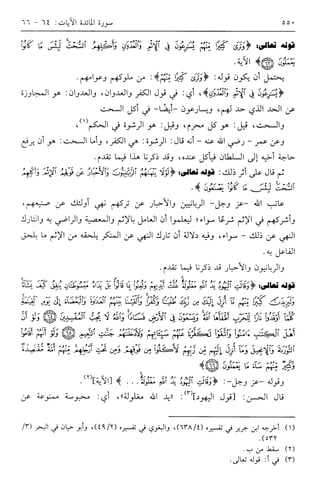 ٥٥٠ سورة المائدة الآيات: ٦٤ - ٦٦
قوله تعالى: ﴿وَتَرَى كَثِيرًا مِنْهُمْ يُسَارِعُونَ فِي الْإِثْمِ وَالْعُدْوَانِ وَأَكْلِهِمُ السُّحْتَ لَبِئْسَ مَا كَانُوا
يَعْمَلُونَ ﴿٦٢﴾﴾ الآية.
يحتمل أن يكون قوله: ﴿وَتَرَى كَثِيرًا مِنْهُمْ﴾: من ملوكهم وعوامهم.
﴿يُسَارِعُونَ فِي الْإِثْمِ وَالْعُدْوَانِ﴾، أي: في قول الكفر والعدوان، والعدوان: هو المجاوزة
عن الحد الذي حد لهم، ويسارعون -أيضًا- في أكل السحت
والسحت، قيل: هو كل محرم، وقيل: هو الرشوة في الحكم(١)،
وعن عمر - رضي الله عنه - أنه قال: الرشوة: هي الكفر، وأما السحت: هو أن يرفع
حاجة أخيه إلى السلطان فيأكل عنده، وقد ذكرنا هذا فيما تقدم.
ثم قال على أثر ذلك: قوله تعالى: ﴿لَوْلَا يَنْهَاهُمُ الرَّبَّانِيُّونَ وَالْأَحْبَارُ عَنْ قَوْلِهِمُ الْإِثْمَ وَأَكْلِهِمُ
السُّحْتَ لَبِئْسَ مَا كَانُوا يَصْنَعُونَ ﴿٦٣﴾﴾.
عاتب الله -عز وجل- الربانيين والأحبار عن تركهم نهي أولئك عن صنيعهم،
وأشركهم في الإثم شرعًا سواء؛ ليعلموا أن العامل بالإثم والمعصية والراضي به والتارك
النهي عن ذلك - سواء، وفيه دلالة أن تارك النهي عن المنكر يلحقه من الإثم ما يلحق
الفاعل به.
والربانيون والأحبار قد ذكرنا فيما تقدم.
قوله تعالى: ﴿وَقَالَتِ الْيَهُودُ يَدُ اللَّهِ مَغْلُولَةٌ غُلَّتْ أَيْدِيهِمْ وَلُعِنُوا بِمَا قَالُوا بَلْ يَدَاهُ مَبْسُوطَتَانِ يُنْفِقُ كَيْفَ يَشَاءُ
وَلَيَزِيدَنَّ كَثِيرًا مِنْهُمْ مَا أُنْزِلَ إِلَيْكَ مِنْ رَبِّكَ طُغْيَانًا وَكُفْرًا وَأَلْقَيْنَا بَيْنَهُمُ الْعَدَاوَةَ وَالْبَغْضَاءَ إِلَى يَوْمِ الْقِيَامَةِ
كُلَّمَا أَوْقَدُوا نَارًا لِلْحَرْبِ أَطْفَأَهَا اللَّهُ وَيَسْعَوْنَ فِي الْأَرْضِ فَسَادًا وَاللَّهُ لَا يُحِبُّ الْمُفْسِدِينَ ﴿٦٤﴾ وَلَوْ أَنَّ
أَهْلَ الْكِتَابِ آمَنُوا وَاتَّقَوْا لَكَفَّرْنَا عَنْهُمْ سَيِّئَاتِهِمْ وَلَأَدْخَلْنَاهُمْ جَنَّاتِ النَّعِيمِ ﴿٦٥﴾ وَلَوْ أَنَّهُمْ أَقَامُوا
التَّوْرَاةَ وَالْإِنْجِيلَ وَمَا أُنْزِلَ إِلَيْهِمْ مِنْ رَبِّهِمْ لَأَكَلُوا مِنْ فَوْقِهِمْ وَمِنْ تَحْتِ أَرْجُلِهِمْ مِنْهُمْ أُمَّةٌ مُقْتَصِدَةٌ
وَكَثِيرٌ مِنْهُمْ سَاءَ مَا يَعْمَلُونَ ﴿٦٦﴾﴾
وقوله -عز وجل-: ﴿وَقَالَتِ الْيَهُودُ يَدُ اللَّهِ مَغْلُولَةٌ...﴾ [الآية](٢).
قال الحسن: [قول اليهود](٣): «يد الله مغلولة»، أي: محبوسة ممنوعة عن
(١) أخرجه ابن جرير في تفسيره (٦٣٨/٤)، والبغوي في تفسيره (٤٩/٢)، وأبو حيان في البحر (٣/
٥٣٢).
(٢) سقط من ب.
(٣) في أ: قوله تعالى.